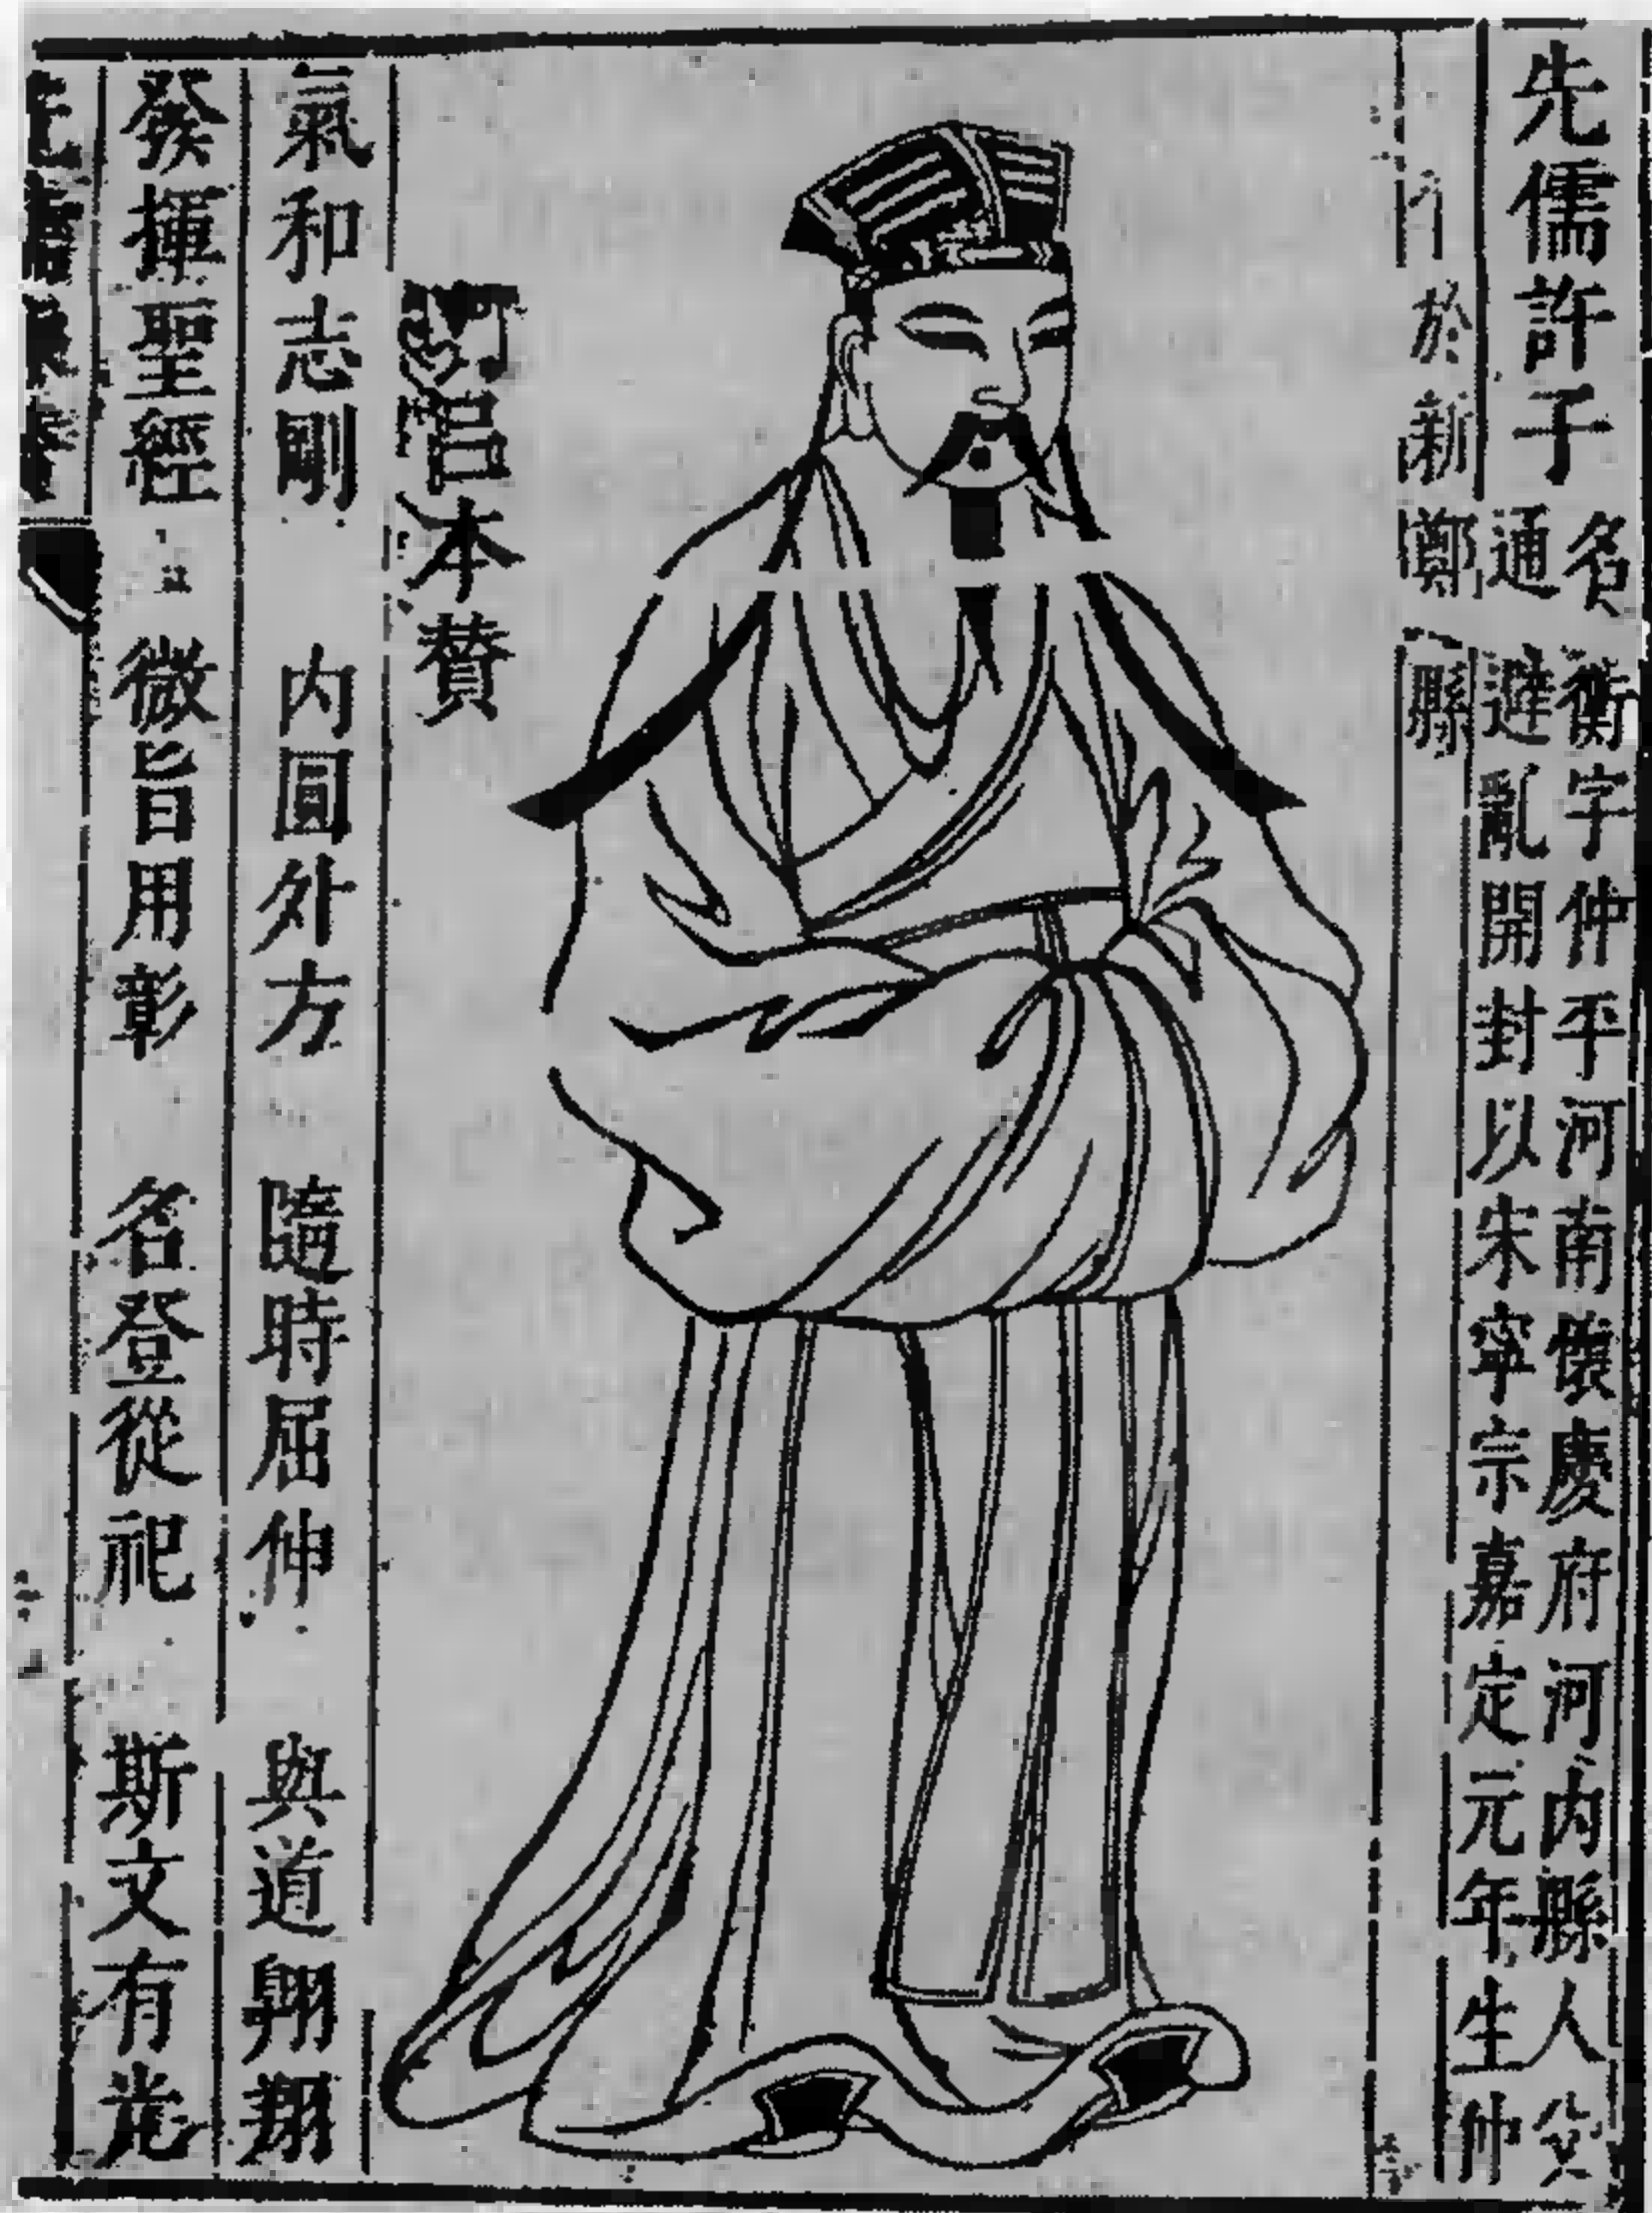 先儒許子
名衡字仲平河南懷慶府河內縣人父
通避亂開封以宋寧宗嘉定元年生仲
於新鄭縣
呂本贊
氣和志剛 內圓外方 隨時屈伸 與道翱翔
發揮聖經 微旨用彰 名登從祀 斯文有光